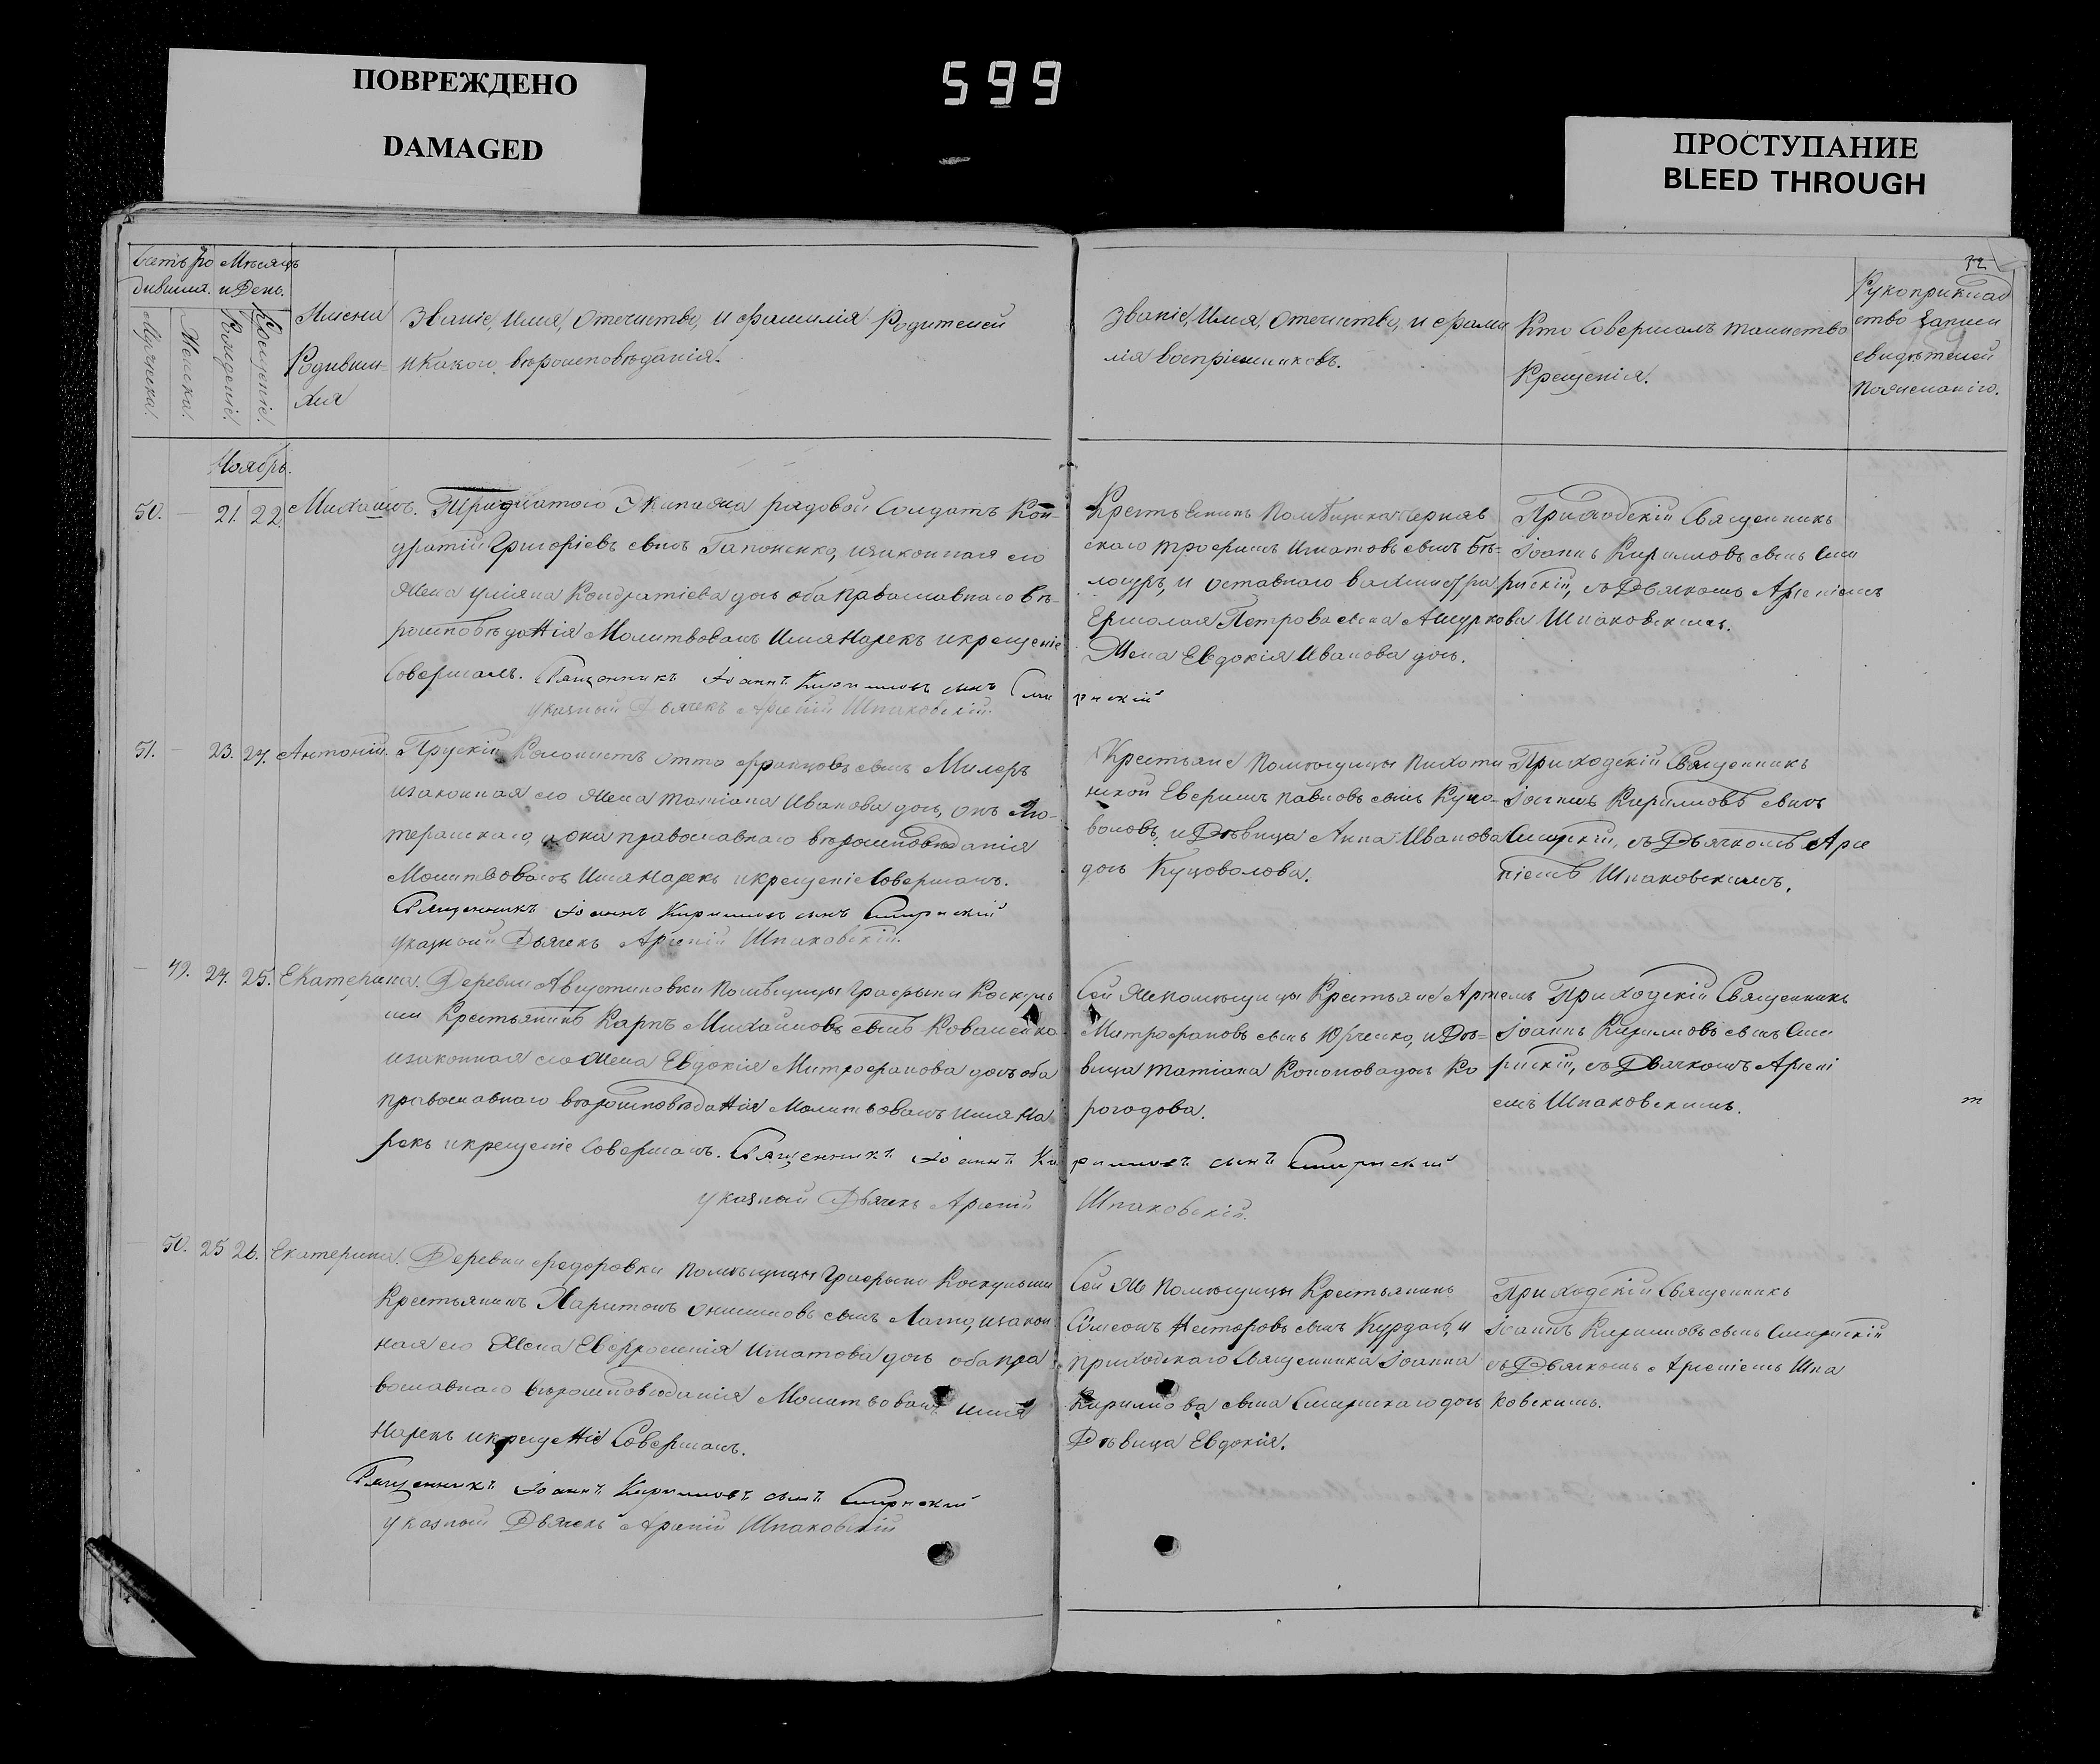 ПОВРЕЖДЕНО
DAMAGED
599
ПРОСТУПАНИЕ
BLEED THROUGH
32
Счетъ ро Мѣсяцъ
дившихся. и День.
Мужеска.
Женска.
Рожденіе.
Крещеніе.
Имена
Родивши-
хся
Званіе, Имя, Отечиство, и фамилія Родителей
и какого вѣроисповѣданія.
Званіе, Имя, Отечиство, и фами
лія воспріемниковъ.
Кто Совершалъ таинство
Крещенія.
Рукоприклад
ство записи
свидѣтелей
по желанію.
Ноябрь.
50. — 21. 22. Михаилъ. Тридцатого Экипажа рядовой Солдатъ Кон-
дратій Григоріевъ сынъ Гапоненко, изаконная его
Жена Уліяна Кондратіева дочь оба православнаго вѣ-
роисповѣданія Молитвовалъ Имя Нарекъ икрещеніе
Совершалъ. Священникъ Іоаннъ Кирилловъ сынъ Сми
рискій
указный Дьячекъ Арсеній Шпаковскій.
Крестьянинъ Помѣщика Черняв
скаго Трофимъ Игнатовъ сынъ Бѣ-
лоцеръ, и отставнаго вахмистра
Ермолая Петрова сына Ашуркова
Жена Евдокія Иванова дочь.
Приходскій Священникъ
Іоаннъ Кирилловъ сынъ Сми
рискій, съ Дьячкомъ Арсеніемъ
Шпаковскимъ.
51. — 23. 24. Антоній. Прускій Колонистъ Отто Францовъ сынъ Милеръ
изаконная его Жена Татіана Иванова дочь, онъ Лю-
теранскаго, а она православнаго вѣроисповѣданія
Молитвовалъ Имя Нарекъ икрещеніе Совершалъ.
Священникъ Іоаннъ Кирилловъ сынъ Смирискій
указной Дьячекъ Арсеній Шпаковскій.
Крестьяне Помѣщицы Пихоти
нской Ефимъ Павловъ сынъ Куцо-
воловъ, и Дѣвица Анна Иванова
дочь Куцоволова.
Приходскій Священникъ
Іоаннъ Кирилловъ сынъ
Смирискій, съ Дьячкомъ Арсе
ніемъ Шпаковскимъ.
— 49. 24. 25. Екатерина. Деревни Августиновки Помѣщицы Графыни Коскуль
ши Крестьянинъ Карпъ Михайловъ сынъ Коваленко
изаконная его Жена Евдокія Митрофанова дочь оба
православнаго вѣроисповѣданія Молитвовалъ имя На
рекъ икрещеніе Совершалъ. Священникъ Іоаннъ Ки
рилловъ сынъ Смирискій
указной Дьячекъ Арсеній
Шпаковскій.
Сей Же помѣщицы Крестьяне Артемъ
Митрофановъ сынъ Юрченко, и Дѣ-
вица Татіана Кононова дочь Ко
рогодова.
Приходскій Священникъ
Іоаннъ Кирилловъ сынъ Сми
рискій, съ Дьячкомъ Арсені
емъ Шпаковскимъ.
— 50. 25 26. Екатерина. Деревни Федоровки Помѣщицы Графыни Коскульши
Крестьянинъ Харитонъ Онисимовъ сынъ изакон
ная его Жена Евфросинія Игнатова дочь оба пра
вославнаго вѣроисповѣданія Молитвовалъ имя
Нарекъ икрещеніе Совершалъ.
Священникъ Іоаннъ Кирилловъ сынъ Смирискій
указной Дьячекъ Арсеній Шпаковскій
Сей Же Помѣщицы Крестьянинъ
Симеонъ Несторовъ сынъ и
приходскаго Священника Іоанна
Кирилова сына Смирискаго дочь
Дѣвица Евдокія.
Приходскій Священникъ
Іоаннъ Кирилловъ сынъ Смирискій
съ Дьячкомъ Арсеніемъ Шпа
ковскимъ.